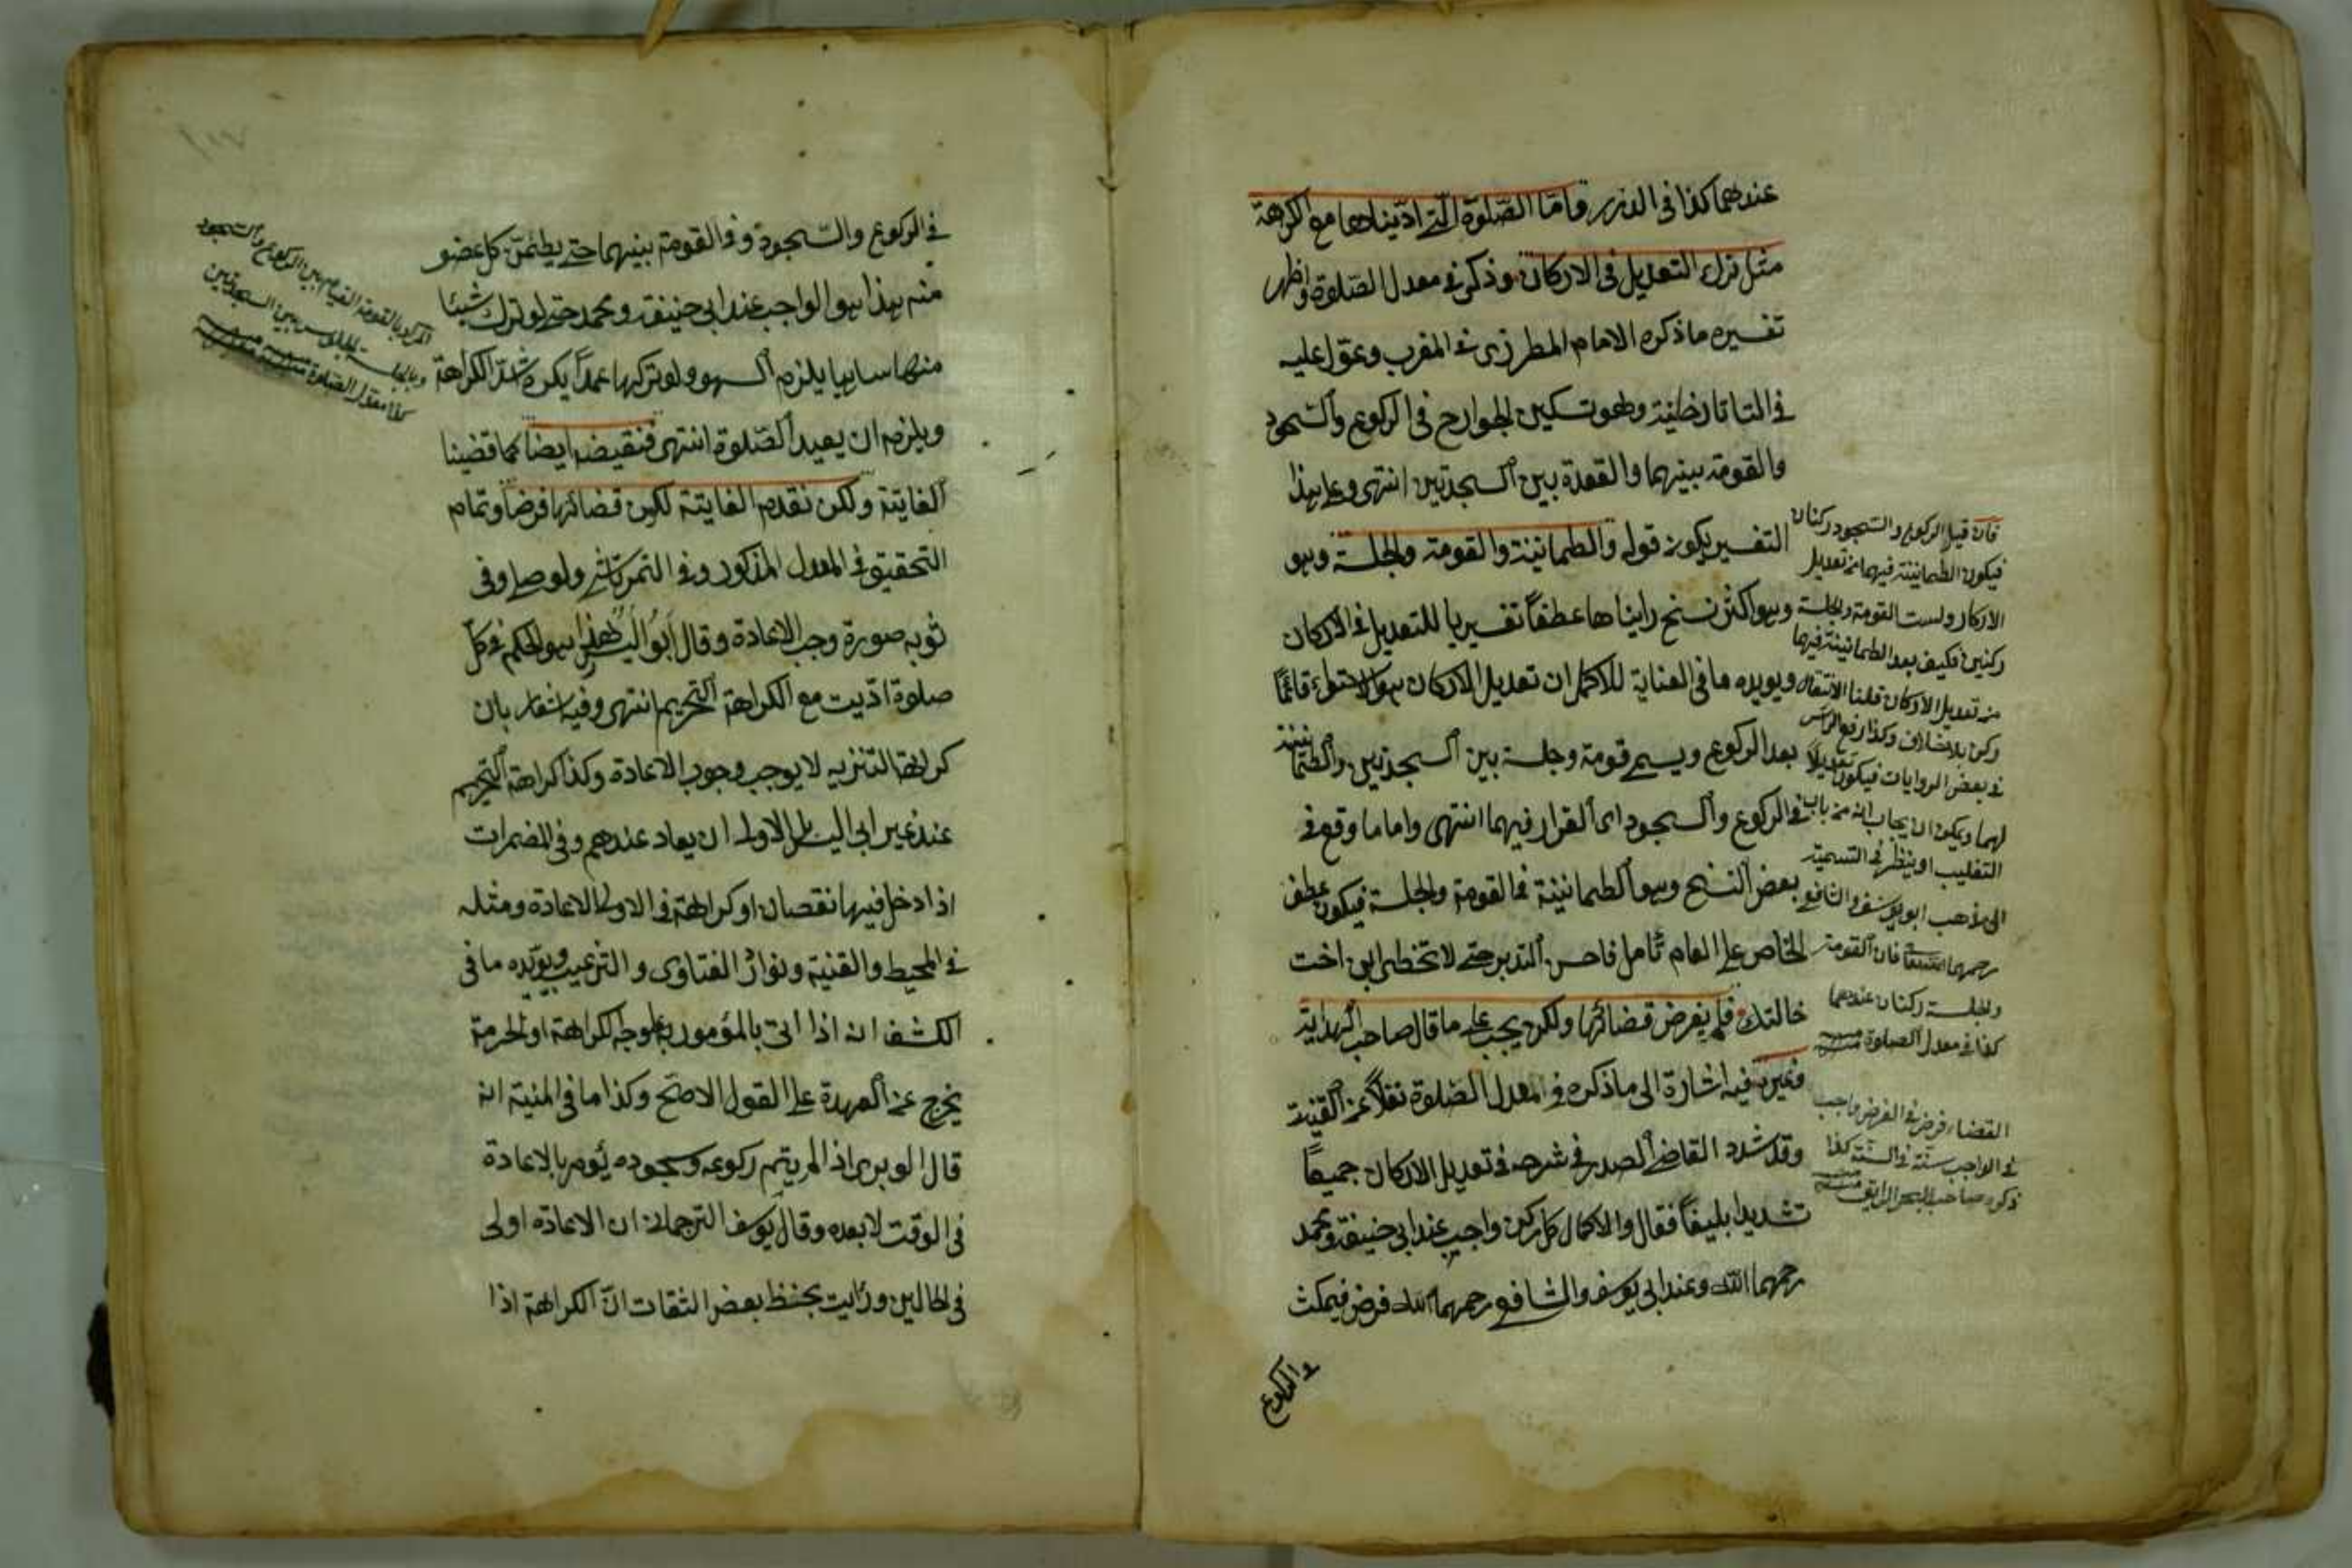 عندهما كذا في الدرر وامّا الصّلوة الّتي ادّيناها مع الكراهة
مثل ترك التعديل في الاركان وذكر في معدل الصّلوة واظهر
تفسيره ما ذكره الامام المطرزى في المغرب وعوّل عليه
في التاتارخانية وهو تسكين الجوارح في الركوع والسّجود
والقومة بينهما والقعدة بين السجدتين انتهى وعلى هذا
التفسير يكون قوله والطمانينة والقومة والجلسة وهو
وهو اكثر نسخ رايناها عطفاً تفسيريا للتعديل في الاركان
ويويده ما في العناية للاكمل ان تعديل الاركان هو الاستواء قائماً
بعد الركوع ويسمى قومة وجلسة بين السجدتين والطمانينة
في الركوع والسجود اى القرار فيهما انتهى واما ما وقع في
بعض النسخ وهو الطمانينة في القومة والجلسة فيكون عطف
الخاص على العام تأمل فاحسن التدبر حتى لا تخطى ابن اخت
خالتك فلم يفرض قضائها ولكن يجب على ما قال صاحب الهداية
وغيره فيه اشارة الى ما ذكره في المعدل الصّلوة نقلاً عن القنية
وقد شدد القاضى الصدر في شرحه في تعديل الاركان جميعاً
تشديدا بليغاً فقال والاكمال كل ركن واجب عند ابى حنيفة ومحمد
رحمهما الله وعند ابى يوسف والشافعى رحمهما الله فرض فيمكث
في الركوع
فان قيل الركوع والسّجود ركنان
فيكون الطمانينة فيهما من تعديل
الاركان وليست القومة والجلسة
ركنين فكيف يعد الطمانينة فيهما
من تعديل الاركان قلنا الانتقال
ركن بلا خلاف وكذا رفع الرأس
في بعض الروايات فيكون تعديلاً
لهما ويمكن ان يجاب انه من باب
التغليب او ينظر في التسمية
الى مذهب ابو يوسف والشافعى
رحمهما فان القومة
والجلسة ركنان عندهما
كذا في معدل الصلوة منه
القضاء فرض في الفرض واجب
في الواجب سنّة في السنّة كذا
ذكره صاحب البحر الرايق منه
في الركوع والسّجود وفي القومة بينهما حتى يطمئنّ كل عضو
منه هذا هو الواجب عند ابى حنيفة ومحمد حتى لو ترك شيئا
منها ساهيا يلزم السهو ولو تركها عمداً يكره اشدّ الكراهة
ويلزم ان يعيد الصّلوة انتهى فنقيضه ايضاً كما قضينا
الفايتة ولكن نقدم الفايتة لكون قضائها فرضاً وتمام
التحقيق في المعدل المذكور وفى التمرتاشى ولو صلى وفى
ثوبه صورة وجب الاعادة وقال ابو اليسر هذا هو الحكم في كلّ
صلوة ادّيت مع الكراهة التحريم انتهى وفيه اشعار بان
كراهة التنزيه لا يوجب وجوب الاعادة وكذا كراهة التحريم
عند غير ابى اليسر بل الاولى ان يعاد عندهم وفى المضمرات
اذا دخل فيها نقصان او كراهة في الاولى الاعادة ومثله
في المحيط والقنية ونوادر الفتاوى والترغيب ويويّده ما في
الكشف انه اذا اتى بالمؤمور به على وجه الكراهة او الحرمة
يخرج عن العهدة على القول الاصّح وكذا ما في المنية انه
قال الوبرى اذا لم يتم ركوعه وسجوده يؤمر بالاعادة
في الوقت لا بعده وقال يوسف الترجمانى ان الاعادة اولى
في الحالين ورأيت بخط بعض الثقات انّ الكراهة اذا
المراد بالقومة القيام بين الركوع والسّجود
وبالجلسة الجلوس بين السجدتين
كذا معدل الصّلوة